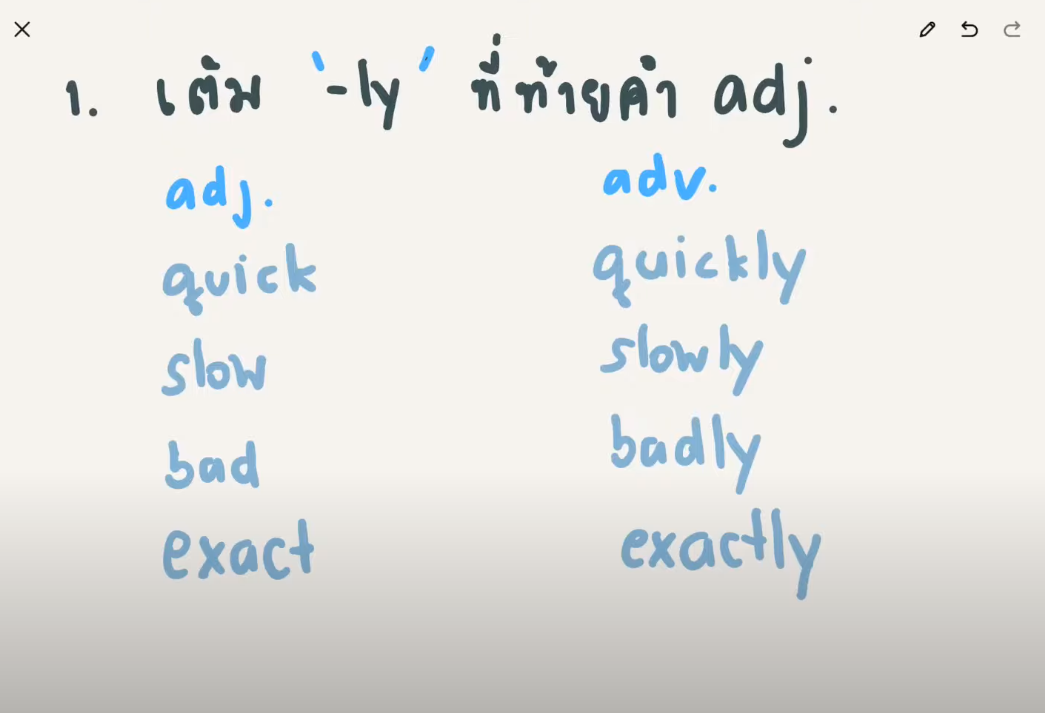 1. เติม '-ly' ที่ท้ายคำ adj.
adj. adv.
quick quickly
slow slowly
bad badly
exact exactly